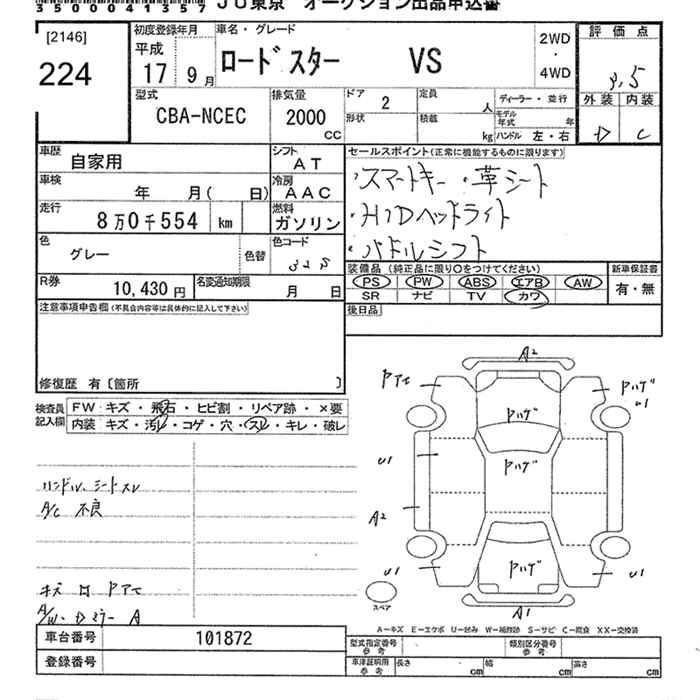 3 5 0 0 0 4 1 3 5 7 JU東京 オークション出品申込書
[2146]
224
初度登録年月
平成
17 9 月
車名・グレード
ロードスター VS
2WD
・
4WD
評 価 点
外 装 内 装
D C
型式
CBA-NCEC
排気量
2000
CC
ドア 2
定員 人
形状
積載 kg
ディーラー・並行
モデル年式 年
ハンドル 左・右
車歴
自家用
シフト
AT
車検
年 月( 日)
冷房
AAC
走行
8万0千554 km
燃料
ガソリン
色
グレー
色替
色コード
R券
10,430 円
名変通知期限
月 日
セールスポイント(正常に機能するものに限ります)
・スマートキー ・革シート
・HIDヘッドライト
・パドルシフト
装備品 (純正品に限り○をつけてください)
PS PW ABS エアB AW
SR ナビ TV カワ
新車保証書
有・無
後日品
注意事項申告欄(不具合内容等は具体的に記入して下さい)
修復歴 有〔箇所 〕
検査員
記入欄
FW キズ・飛石・ヒビ割・リペア跡・×要
内装 キズ・汚レ・コゲ・穴・スレ・キレ・破レ
ハンドル、シートスレ
A/C 不良
キズ 凹 Pアセ
A/W・Dミラー A
A2
Pアセ
Pハゲ
U1
Pハゲ
U1
Pハゲ
A2
U1
Pハゲ
U1
スペア
A1
A―キズ E―エクボ U―凹み W―補修跡 S―サビ C―腐食 XX―交換済
車台番号 101872
登録番号
型式指定番号
参 考
類別区分番号
参 考
車庫証明用
参 考
長さ cm 幅 cm 高さ cm